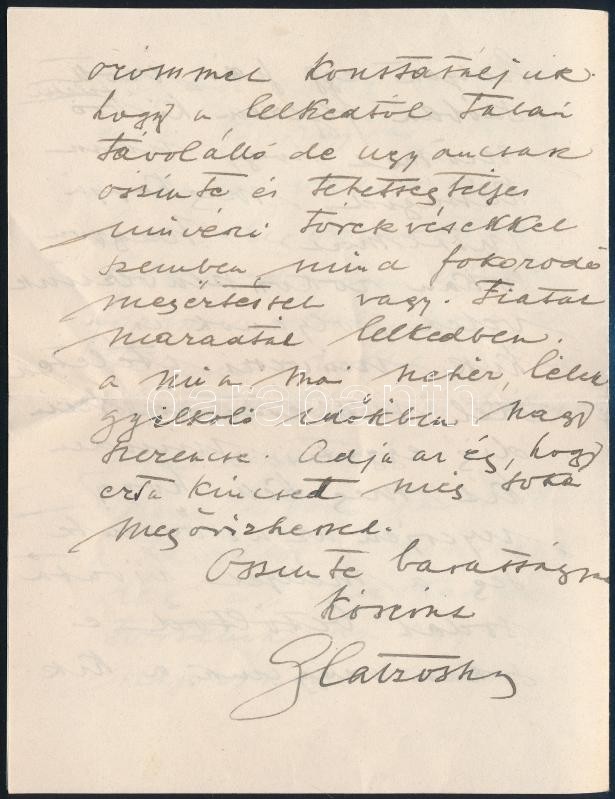 örömmel konstatáljuk
hogy a lelkedtől talán
távolálló de ugyancsak
őszinte és tehetségteljes
művészi törekvésekkel
szemben mind fokozódó
megértéssel vagy. Fiatal
maradtál lelkedben.
a mi a mai nehéz, lélek
gyilkoló időkben nagy
szerencse. Adja az ég, hogy
ezt a kincset még soká
megőrizhessed.
Őszinte barátsággal
köszönt
Glatz Oszkár
darabanth